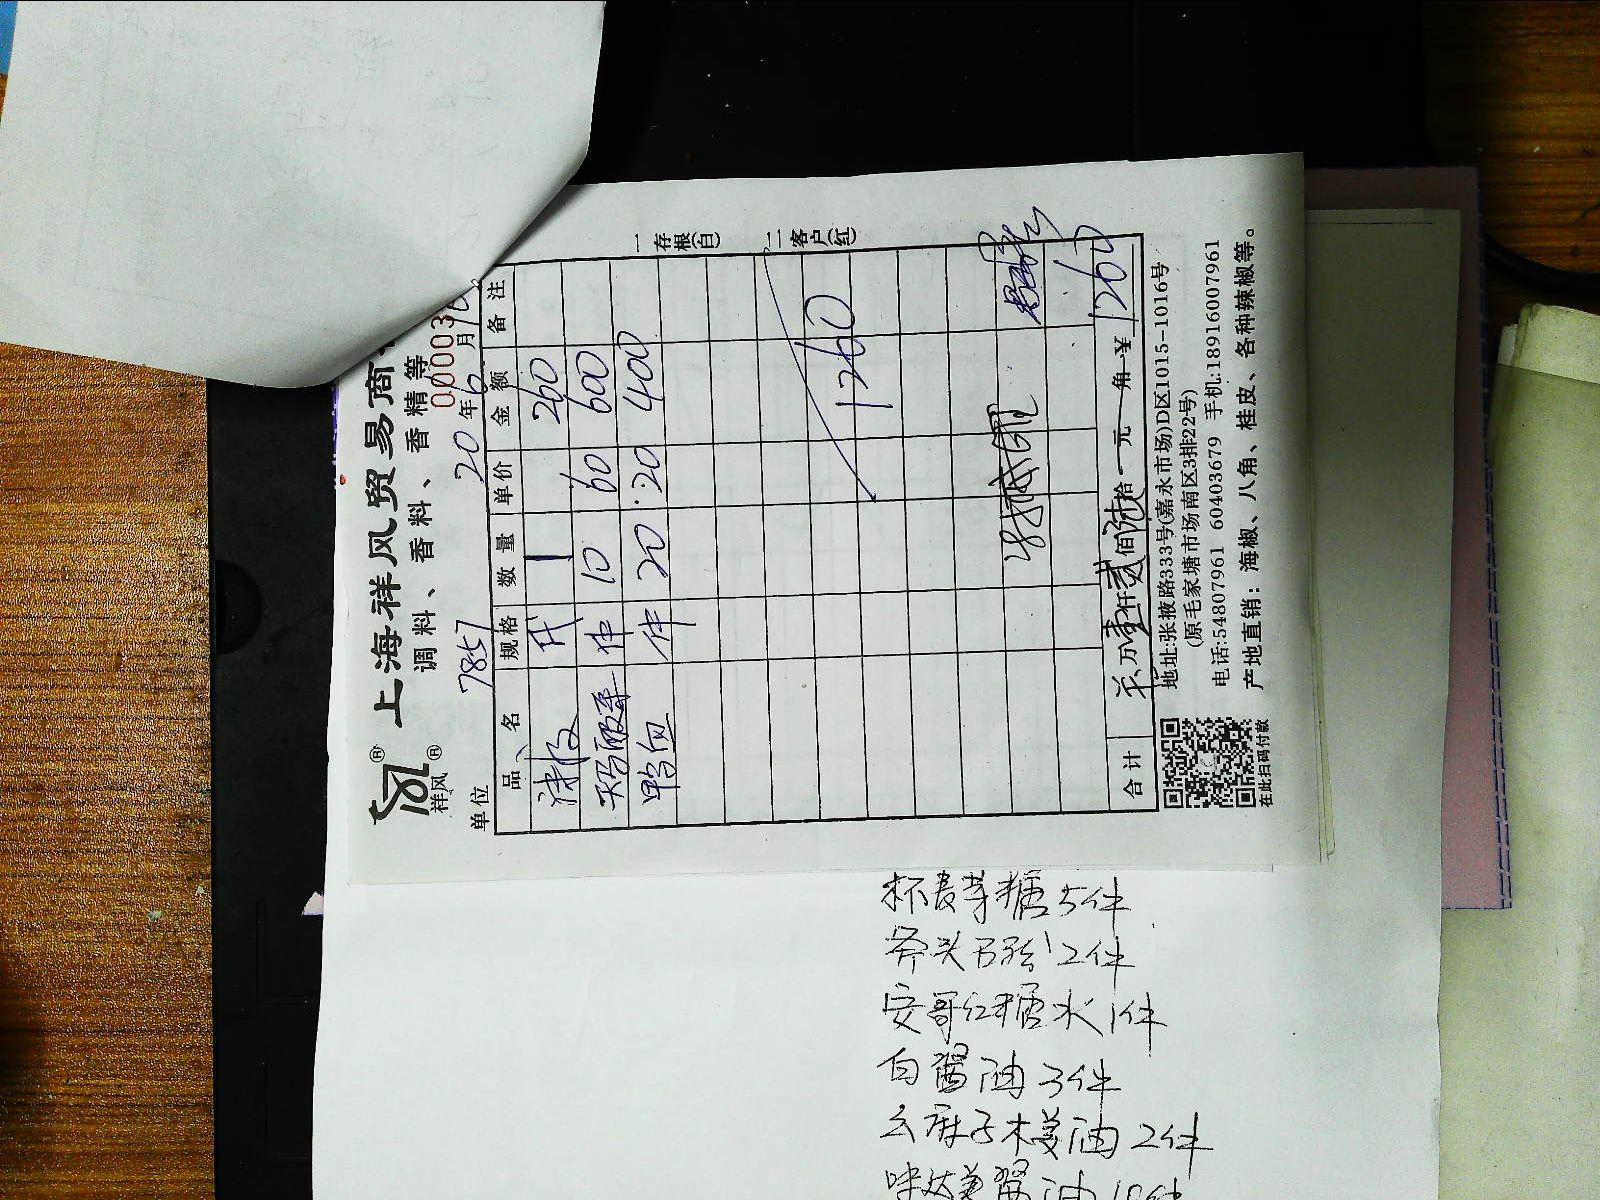 上海祥风贸易商
祥风
调料、香料、香精等
00003
单位 7857 20年6月16
品名 规格 数量 单价 金额 备注
陈皮 代 1 260
件 10 60 600
鸭血 件 20 20 400
1260
合计 万壹仟贰佰陆拾 元 角 ¥1260
一存根(白)
二客户(红)
地址:张掖路333号(嘉永市场)D区1015-1016号
(原毛家塘市场南区3排22号)
电话:54807961 60403679 手机:18916007961
产地直销：海椒、八角、桂皮、各种辣椒等。
在此扫码付款
杯麦芽糖5件
斧头 2件
安哥红糖水1件
白酱油3件
云麻子木姜油2件
味达美酱油10件